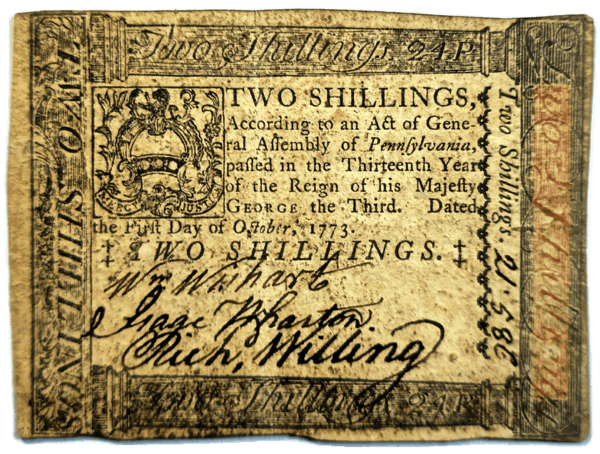 Two Shillings 24.P
TWO SHILLINGS
TWO SHILLINGS,
According to an Act of Gene-
ral Aſſembly of Pennſylvania,
paſſed in the Thirteenth Year
of the Reign of his Majeſty
GEORGE the Third. Dated
the Firſt Day of October, 1773.
‡ TWO SHILLINGS. ‡
Wm Wishart
Isaac Wharton
Rich. Willing
Two Shillings. 21.586
Two Shillings 24.P